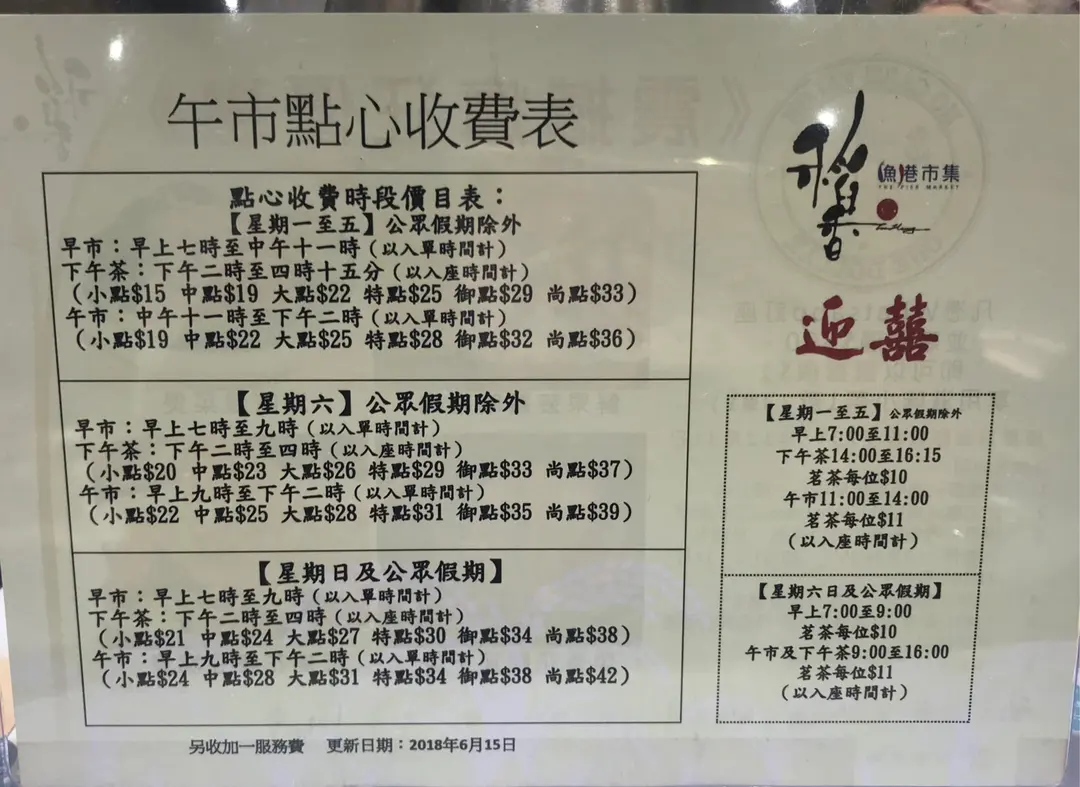 午市點心收費表
點心收費時段價目表：
【星期一至五】公眾假期除外
早市：早上七時至中午十一時（以入單時間計）
下午茶：下午二時至四時十五分（以入座時間計）
（小點$15 中點$19 大點$22 特點$25 御點$29 尚點$33）
午市：中午十一時至下午二時（以入單時間計）
（小點$19 中點$22 大點$25 特點$28 御點$32 尚點$36）
【星期六】公眾假期除外
早市：早上七時至九時（以入單時間計）
下午茶：下午二時至四時（以入座時間計）
（小點$20 中點$23 大點$26 特點$29 御點$33 尚點$37）
午市：早上九時至下午二時（以入單時間計）
（小點$22 中點$25 大點$28 特點$31 御點$35 尚點$39）
【星期日及公眾假期】
早市：早上七時至九時（以入單時間計）
下午茶：下午二時至四時（以入座時間計）
（小點$21 中點$24 大點$27 特點$30 御點$34 尚點$38）
午市：早上九時至下午二時（以入單時間計）
（小點$24 中點$28 大點$31 特點$34 御點$38 尚點$42）
另收加一服務費 更新日期：2018年6月15日
稻香
漁港市集
THE PIER MARKET
迎囍
【星期一至五】公眾假期除外
早上7:00至11:00
下午茶14:00至16:15
茗茶每位$10
午市11:00至14:00
茗茶每位$11
（以入座時間計）
【星期六日及公眾假期】
早上7:00至9:00
茗茶每位$10
午市及下午茶9:00至16:00
茗茶每位$11
（以入座時間計）